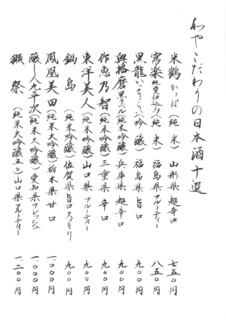 和やこだわりの日本酒十選
米鶴かっぱ(純米)山形県 超辛口 七五〇円
(純米)福島県 フルーティー 八五〇円
黒龍いっちょらい(吟醸)福井県 旨口 九〇〇円
奥播磨(純米吟醸)兵庫県 超辛口 九〇〇円
作 恵乃智(純米吟醸)三重県 辛口 九〇〇円
東洋美人(純米吟醸)山口県 フルーティー 九〇〇円
鍋島(純米吟醸)佐賀県 旨口スッキリ 九〇〇円
鳳凰美田(純米大吟醸)栃木県 甘口 一〇〇〇円
醸し人九平次(純米大吟醸)愛知県 フレッシュ 一〇〇〇円
獺祭(純米大吟醸)山口県 フルーティー 一二〇〇円